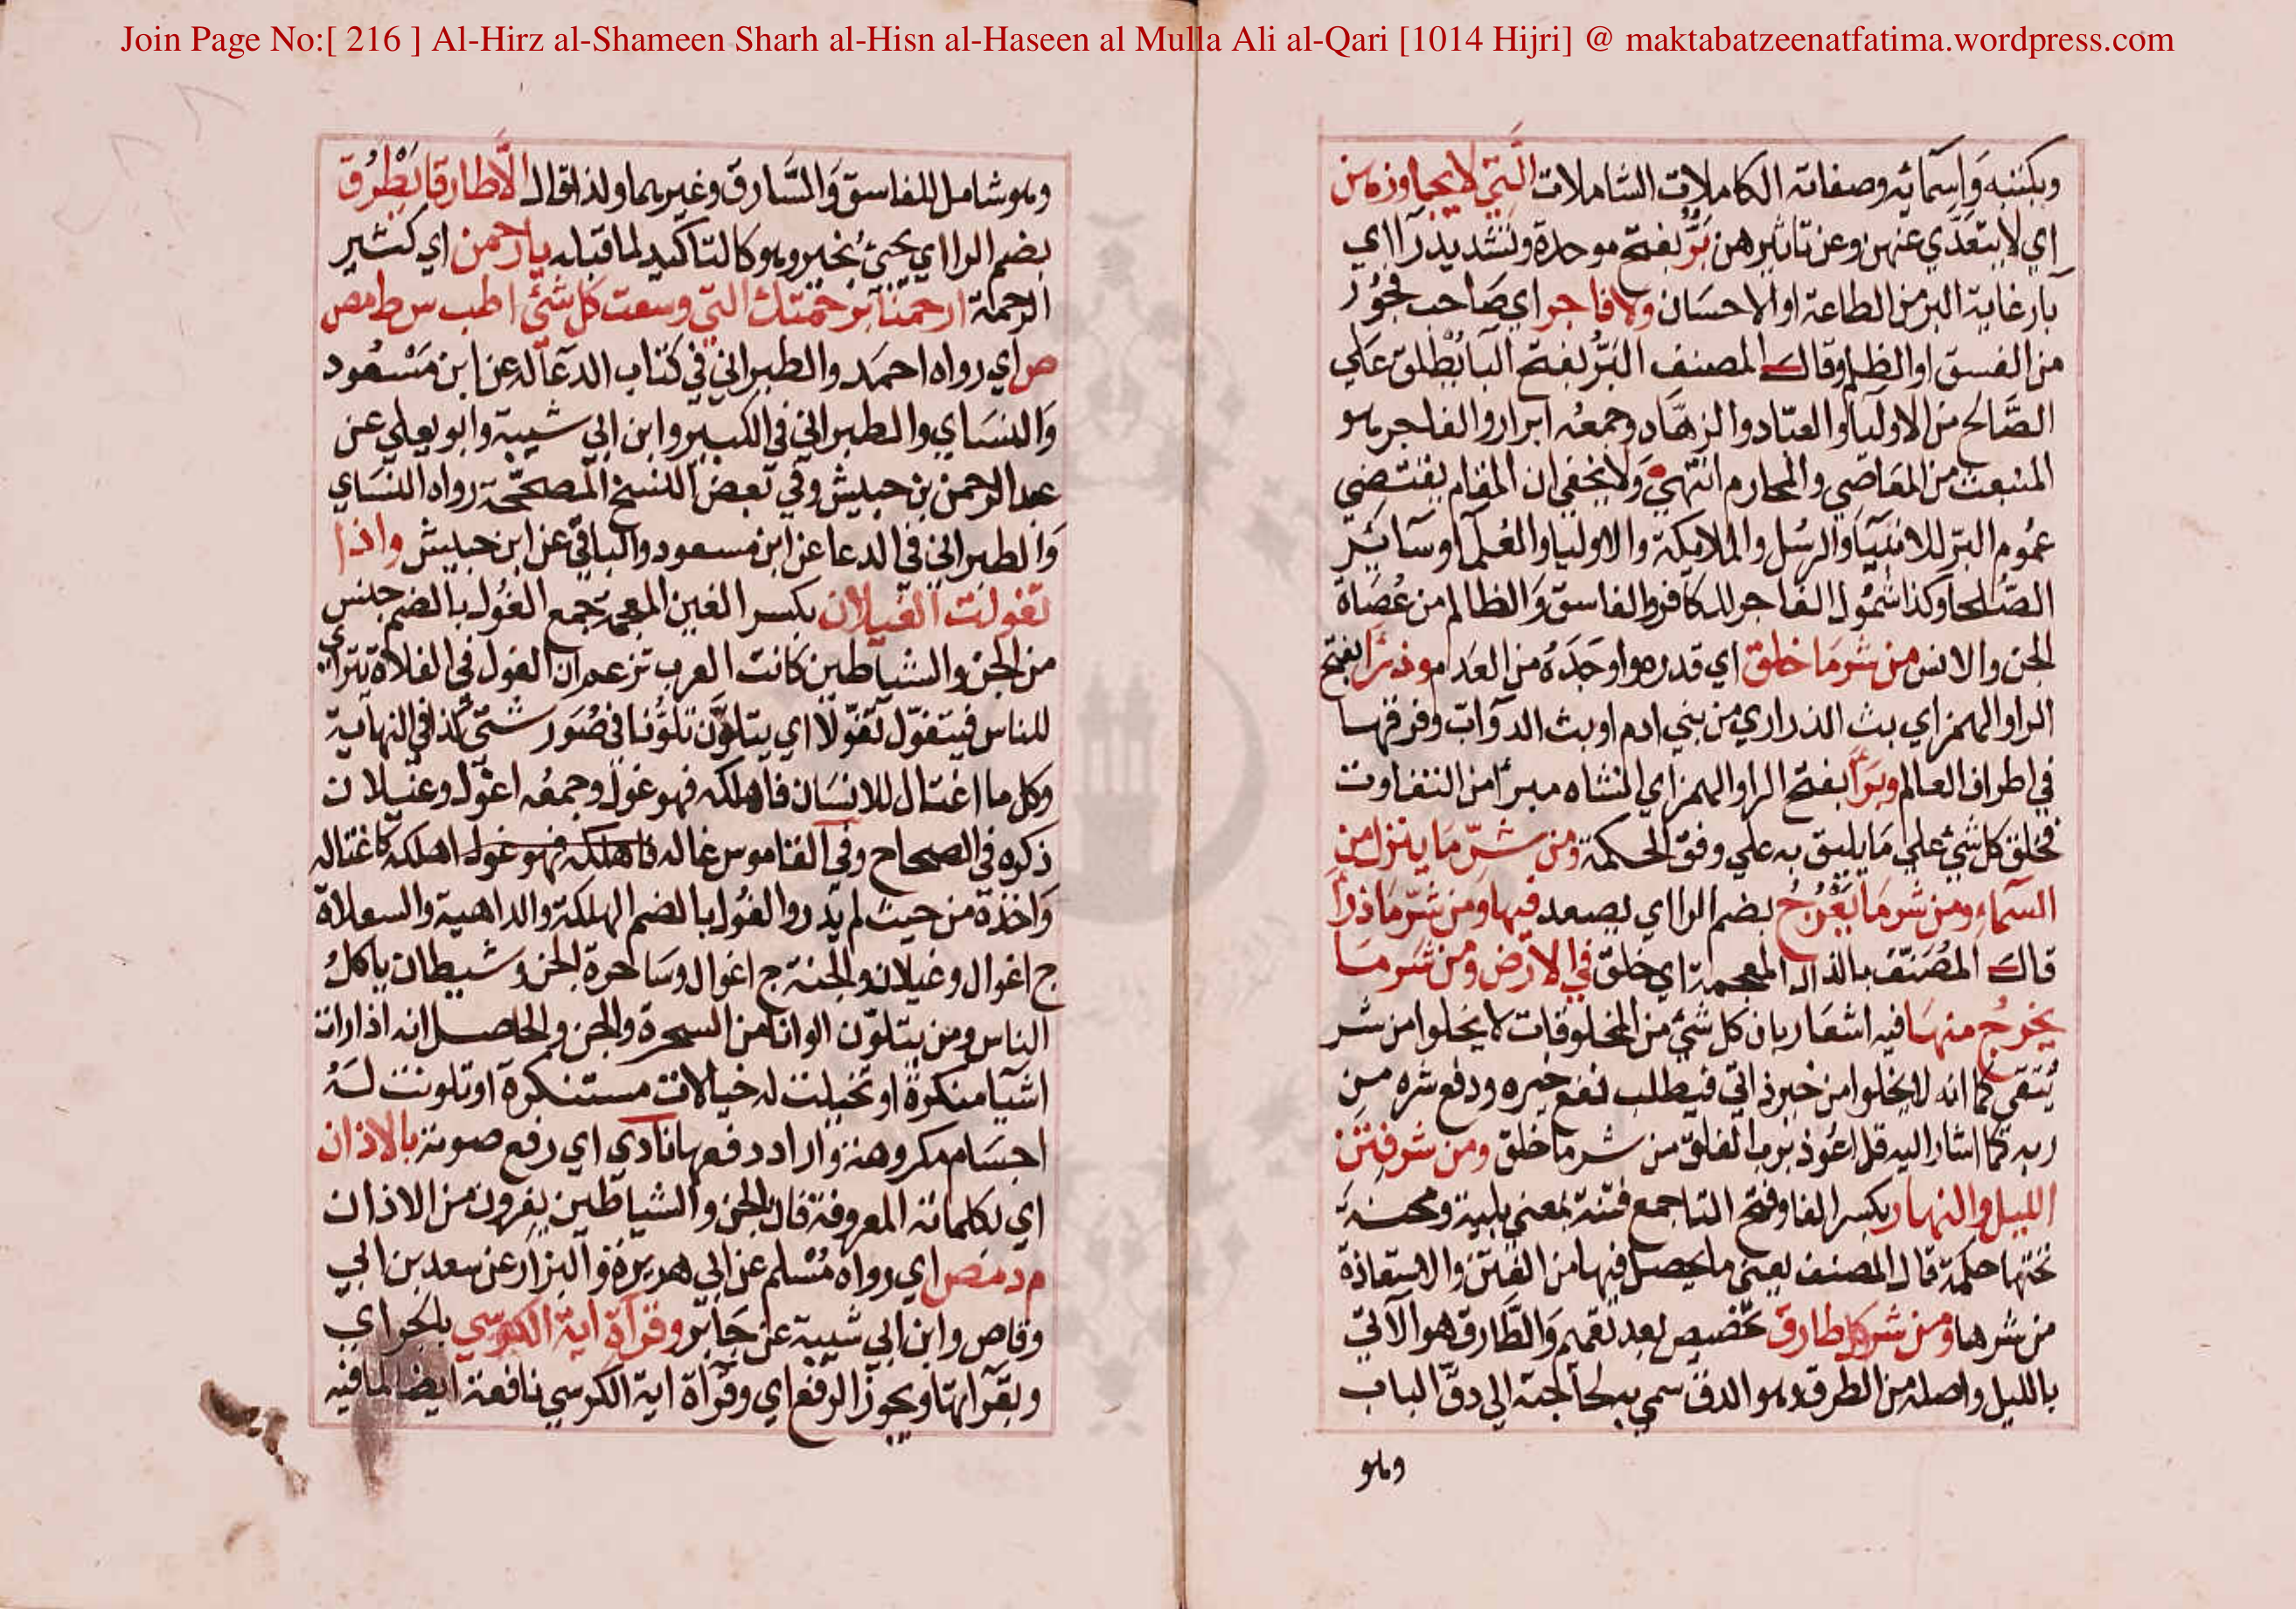 Join Page No:[ 216 ] Al-Hirz al-Shameen Sharh al-Hisn al-Haseen al Mulla Ali al-Qari [1014 Hijri] @ maktabatzeenatfatima.wordpress.com
وبكتبه وَاسمآئه وصفاته الكاملات الشاملات الَّتي لا يجاوزهن
اي لا يتعَدّي عنهن وعن تاثيرهن بَرٌّ بفتح موحدة وتشديد رآ اي
بآر غاية البر من الطاعة او الاحسَان ولا فاجر اي صَاحب فجُور
من الفسق او الظلم وقال المصنف البَرُّ بفتح البآ يُطلق عَلي
الصَّالح من الاوليآ والعبّاد والزهَّاد وجمعُه ابرار والفاجر هو
المنبعث من المعَاصي والمحارم انتهي وَلا يخفي ان المقام يقتضي
عمُوم البَرّ للانبيَآ والرسُل والملايكة والاوليا والعُلمآ وسآئر
الصُّلحا وكذا شمُول الفاجر للكافر والفاسق وَالظالم من عُصَاة
الجن والانس من شر مَا خلق اي قدره واوجَدَهُ من العَدم وذرَأ بفتح
الرا والهمز اي بث الذراري من بني ادم او بث الدوآب وفرقها
في اطراف العالم وبَرَأ بفتح الرا والهمز اي انشاه مبرأ من التفاوت
فخلق كل شئ علي مَا يليق به علي وفق الحكمة ومن شرّ مَا ينزل من
السّمآء ومن شر مَا يَعْرُجُ بضم الرا اي يصعد فيها ومن شرّ مَا ذرأ
قال المُصَنّف بالذال المعجمة اي خلق في الارض ومن شر مَا
يخرُج منهَا فيه اشعَار بان كل شئ من المخلوقات لا يخلوا من شر
يُتقي كما انه لا يخلوا من خير ذاتي فيطلب نفع خيره ودفع شره من
ربه كما اشار اليه قل اعُوذ برب الفلق من شر ما خلق ومن شر فتن
الليل والنهار بكسر الفا وفتح التا جمع فتنة بمعني بلية ومحنة
تحتها حكمة قال المصنف يعني ما يحصل فيها من الفتن والاستعاذة
من شرها ومن شر كل طارق تخصيص بعد تعميم وَالطَّارق هو الآتي
بالليل واصله من الطرق وهو الدق سمي به لحاجته الي دقّ الباب
وهو
وهو شامل للفاسق وَالسَّارق وغيرهما ولذا قال الَّا طارقا يَطْرُق
بضم الرا اي يجئ بخير وهو كالتاكيد لما قبله يا رحمن اي كثير
الرحمة ارحمنا برحمتك التي وسعت كل شئ ا طب س ط مص
ص اي رواه احمَد والطبراني في كتاب الدعآ له عن ابن مَسْعُود
وَالنسَاي والطبراني في الكبير وابن ابي شيبة وابو يعلي عن
عبد الرحمن بن حبيش وفي بعض النسخ المصحّحة رواه النسَاي
وَالطبراني في الدعا عن ابن مسعود والباقي عن ابن حبيش واذا
تغولت الغيلان بكسر الغين المعجمة جمع الغُول بالضم جنس
من الجن والشياطين كانت العرب تزعم ان الغول في الفلاة تترآي
للناس فيتغوّل تغوّلا اي يتلوَّن تلوُّنا في صُوَر شتّي كذا في النهاية
وكل ما اغتال للانسَان فاهلكه فهو غول وجمعُه اغوال وغيلان
ذكره في الصحاح وفي القاموس غاله فاهلكه فهو غول اهلكه كاغتاله
وَاخذه من حيث لم يَدر والغُول بالضم الهلكة والداهية والسعلاة
ج اغوال وغيلان والجنة ج اغوال وسَاحرة الجن وشيطان ياكلُ
الناس ومن يتلوّن الوانا من السحرة والجن والحاصل انه اذا رات
اشيا منكرة او تخيلت له خيالات مستنكرة او تلونت لَهُ
اجسَام مكروهة واراد دفعها نادي اي رفع صوته بالاذان
اي بكلماته المعروفة فان الجن والشياطين يفرون من الاذان
م د مص اي رواه مُسْلم عن ابي هريرَة وَالبزار عن سعد بن ابي
وقاص وابن ابي شيبة عن جَابر وقرآة اية الكرسي بالجر اي
وبقرآتها ويجوز الرفع اي وقرآة اية الكرسي نافعة ايضا لما فيه